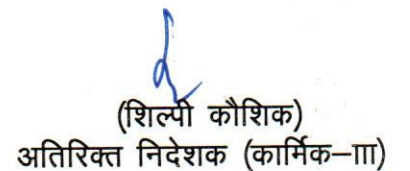 (शिल्पी कौशिक)
अतिरिक्त निदेशक (कार्मिक–III)